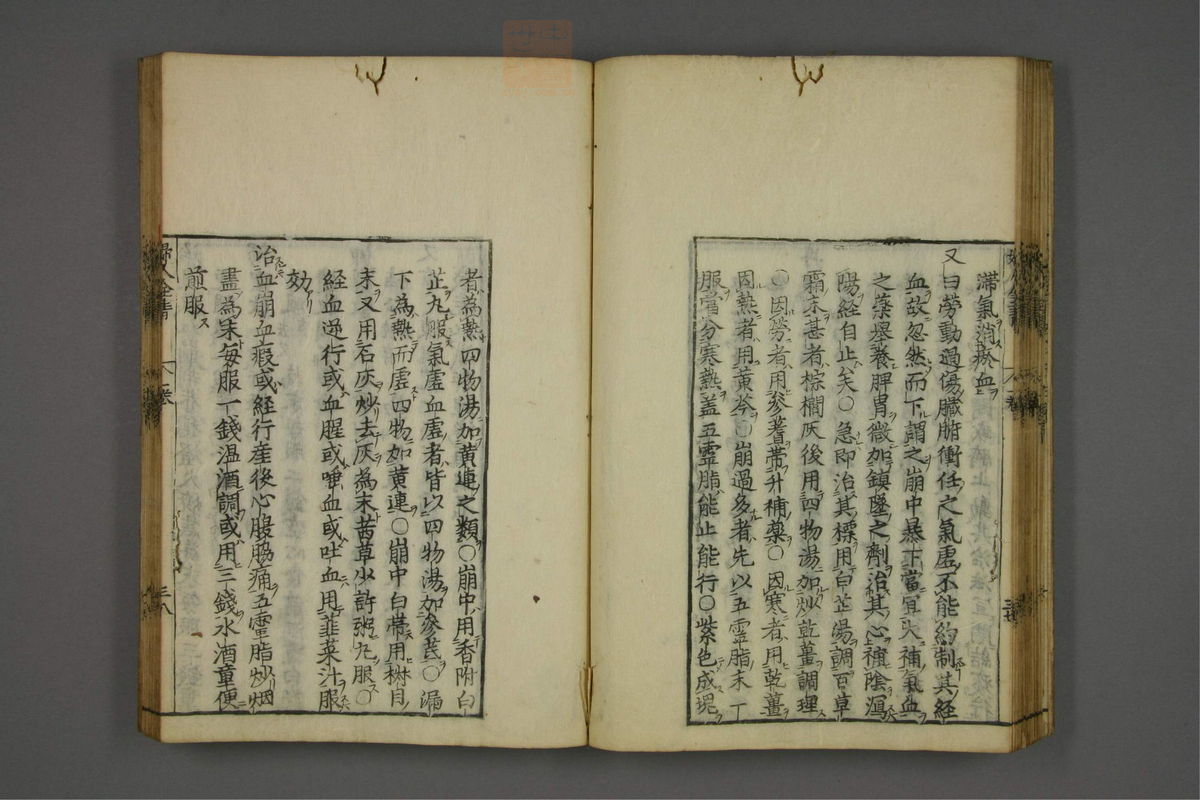 滞氣消瘀血
又曰勞動過傷臓腑衝任之氣虛不能約制其経
血故忽然而下謂之崩中暴下當宜大補氣血
之藥舉養脾胃微加鎮墜之劑治其心補陰瀉
陽経自止矣○急即治其標用白芷湯調百草
霜末甚者棕櫚灰後用四物湯加炒乾薑調理
○因勞者用參蓍帯升補藥○因寒者用乾薑
因熱者用黄芩○崩過多者先以五靈脂末一
服當分寒熱盖五霊脂能止能行○紫色成塊
者為熱四物湯加黄連之類○崩中用香附白
芷丸服氣虛血虛者皆以四物湯加參芪○漏
下為熱而虛四物加黄連○崩中白帯用椒目
末又用石灰炒去灰為末茜草少許粥丸服○
経血逆行或血腥或唾血或吐血用韮菜汁服
効
治血崩血瘕或経行産後心腹脇痛五靈脂炒烟
盡為末每服一錢温酒調或用三錢水酒童便
煎服